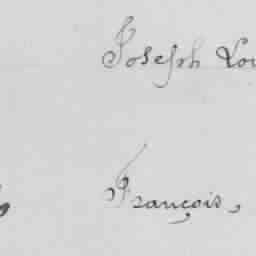 Joseph Lou
François,